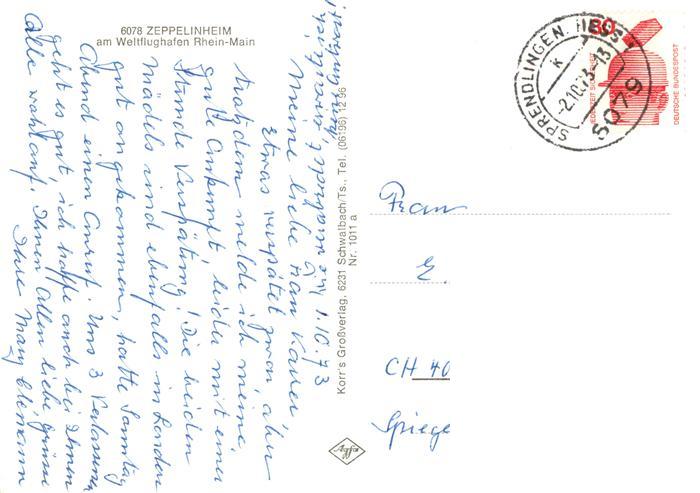 6078 ZEPPELINHEIM
am Weltflughafen Rhein-Main
1.10.73
Meine liebe Frau Kauer,
Etwas verspätet zwar aber
trotzdem melde ich meine
gute Ankunft, leider mit einer
Stunde Verspätung! Die beiden
Mädels sind ebenfalls in London
gut angekommen, hatte Samstag
Abend einen Anruf. Uns 3 Verlassenen
geht es gut, ich hoffe auch bei Ihnen
alle wohlauf. Ihnen Allen liebe Grüsse
Ihre Mary
Korr's Großverlag, 6231 Schwalbach/Ts., Tel. (06196) 12 96
Nr. 1011 a
Agfa
SPRENDLINGEN, HESS
K
-2.10.73-13
6079
30
JEDERZEIT SICHERHEIT
DEUTSCHE BUNDESPOST
Frau
E.
CH 40
Spiege